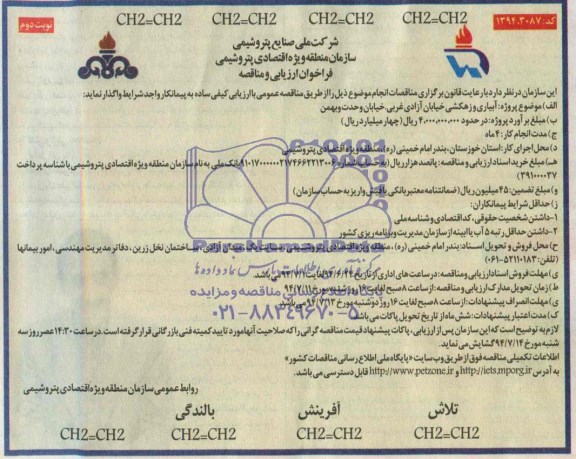 CH2=CH2 CH2=CH2 CH2=CH2 CH2=CH2
کد: ۱۳۹۴.۳۰۸۷
نوبت دوم
شرکت ملی صنایع پتروشیمی
سازمان منطقه ویژه اقتصادی پتروشیمی
فراخوان ارزیابی و مناقصه
این سازمان در نظر دارد با رعایت قانون برگزاری مناقصات انجام موضوع ذیل را از طریق مناقصه عمومی با ارزیابی کیفی ساده به پیمانکار واجد شرایط واگذار نماید:
الف) موضوع پروژه: آبیاری و زهکشی خیابان آزادی غربی، خیابان وحدت و بهمن
ب) مبلغ برآورد پروژه: در حدود ۴،۰۰۰،۰۰۰،۰۰۰ ریال (چهار میلیارد ریال)
ج) مدت انجام کار: ۴ ماه
د) محل اجرای کار: استان خوزستان، بندر امام خمینی (ره)، منطقه ویژه اقتصادی پتروشیمی
هـ) مبلغ خرید اسناد ارزیابی و مناقصه: پانصد هزار ریال (به حساب شماره ۲۱۷۴۶۶۲۲۱۳۰۰۶ بانک ملی به نام سازمان منطقه ویژه اقتصادی پتروشیمی با شناسه پرداخت
و) مبلغ تضمین: ۴۵ میلیون ریال (ضمانتنامه معتبر بانکی یا فیش واریز به حساب سازمان)
ز) حداقل شرایط پیمانکاران:
۱- داشتن شخصیت حقوقی، کد اقتصادی و شناسه ملی
۲- داشتن حداقل رتبه ۵ آب یا ابنیه از سازمان مدیریت و برنامه ریزی کشور
ح) محل فروش و تحویل اسناد: بندر امام خمینی (ره)، منطقه ویژه اقتصادی پتروشیمی، سایت یک، میدان آزادی، ساختمان نخل زرین، دفاتر مدیریت مهندسی، امور پیمانها
(تلفن: ۵۲۱۱۰۱۸۳-۰۶۱)
ی) مهلت فروش اسناد ارزیابی و مناقصه: در ساعت های اداری از تاریخ لغایت ۹۴/۷/۱ می باشد.
ط) زمان تحویل مدارک ارزیابی و مناقصه: از ساعت ۸ صبح لغایت ۱۶ روز مورخ ۹۴/۷/۱۱
ی) مهلت انصراف پیشنهادات: از ساعت ۸ صبح لغایت ۱۶ روز دوشنبه مورخ ۹۴/۷/۱۳ می باشد.
ک) مدت اعتبار پیشنهادات: شش ماه از تاریخ تحویل پاکات می باشد.
لازم به توضیح است که این سازمان پس از ارزیابی، پاکات پیشنهاد قیمت مناقصه گرانی را که صلاحیت آنها مورد تایید کمیته فنی بازرگانی قرار گرفته است. در ساعت ۱۴:۳۰ عصر روز سه
شنبه مورخ ۹۴/۷/۱۴ گشایش می نماید.
اطلاعات تکمیلی مناقصه فوق از طریق وب سایت «پایگاه ملی اطلاع رسانی مناقصات کشور»
به آدرس http://iets.mporg.ir و http://www.petzone.ir قابل دسترسی می باشد.
روابط عمومی سازمان منطقه ویژه اقتصادی پتروشیمی
پارس نماد داده ها
۰۲۱-۸۸۳۴۹۶۷۰-۵
تلاش آفرینش بالندگی
CH2=CH2 CH2=CH2 CH2=CH2 CH2=CH2